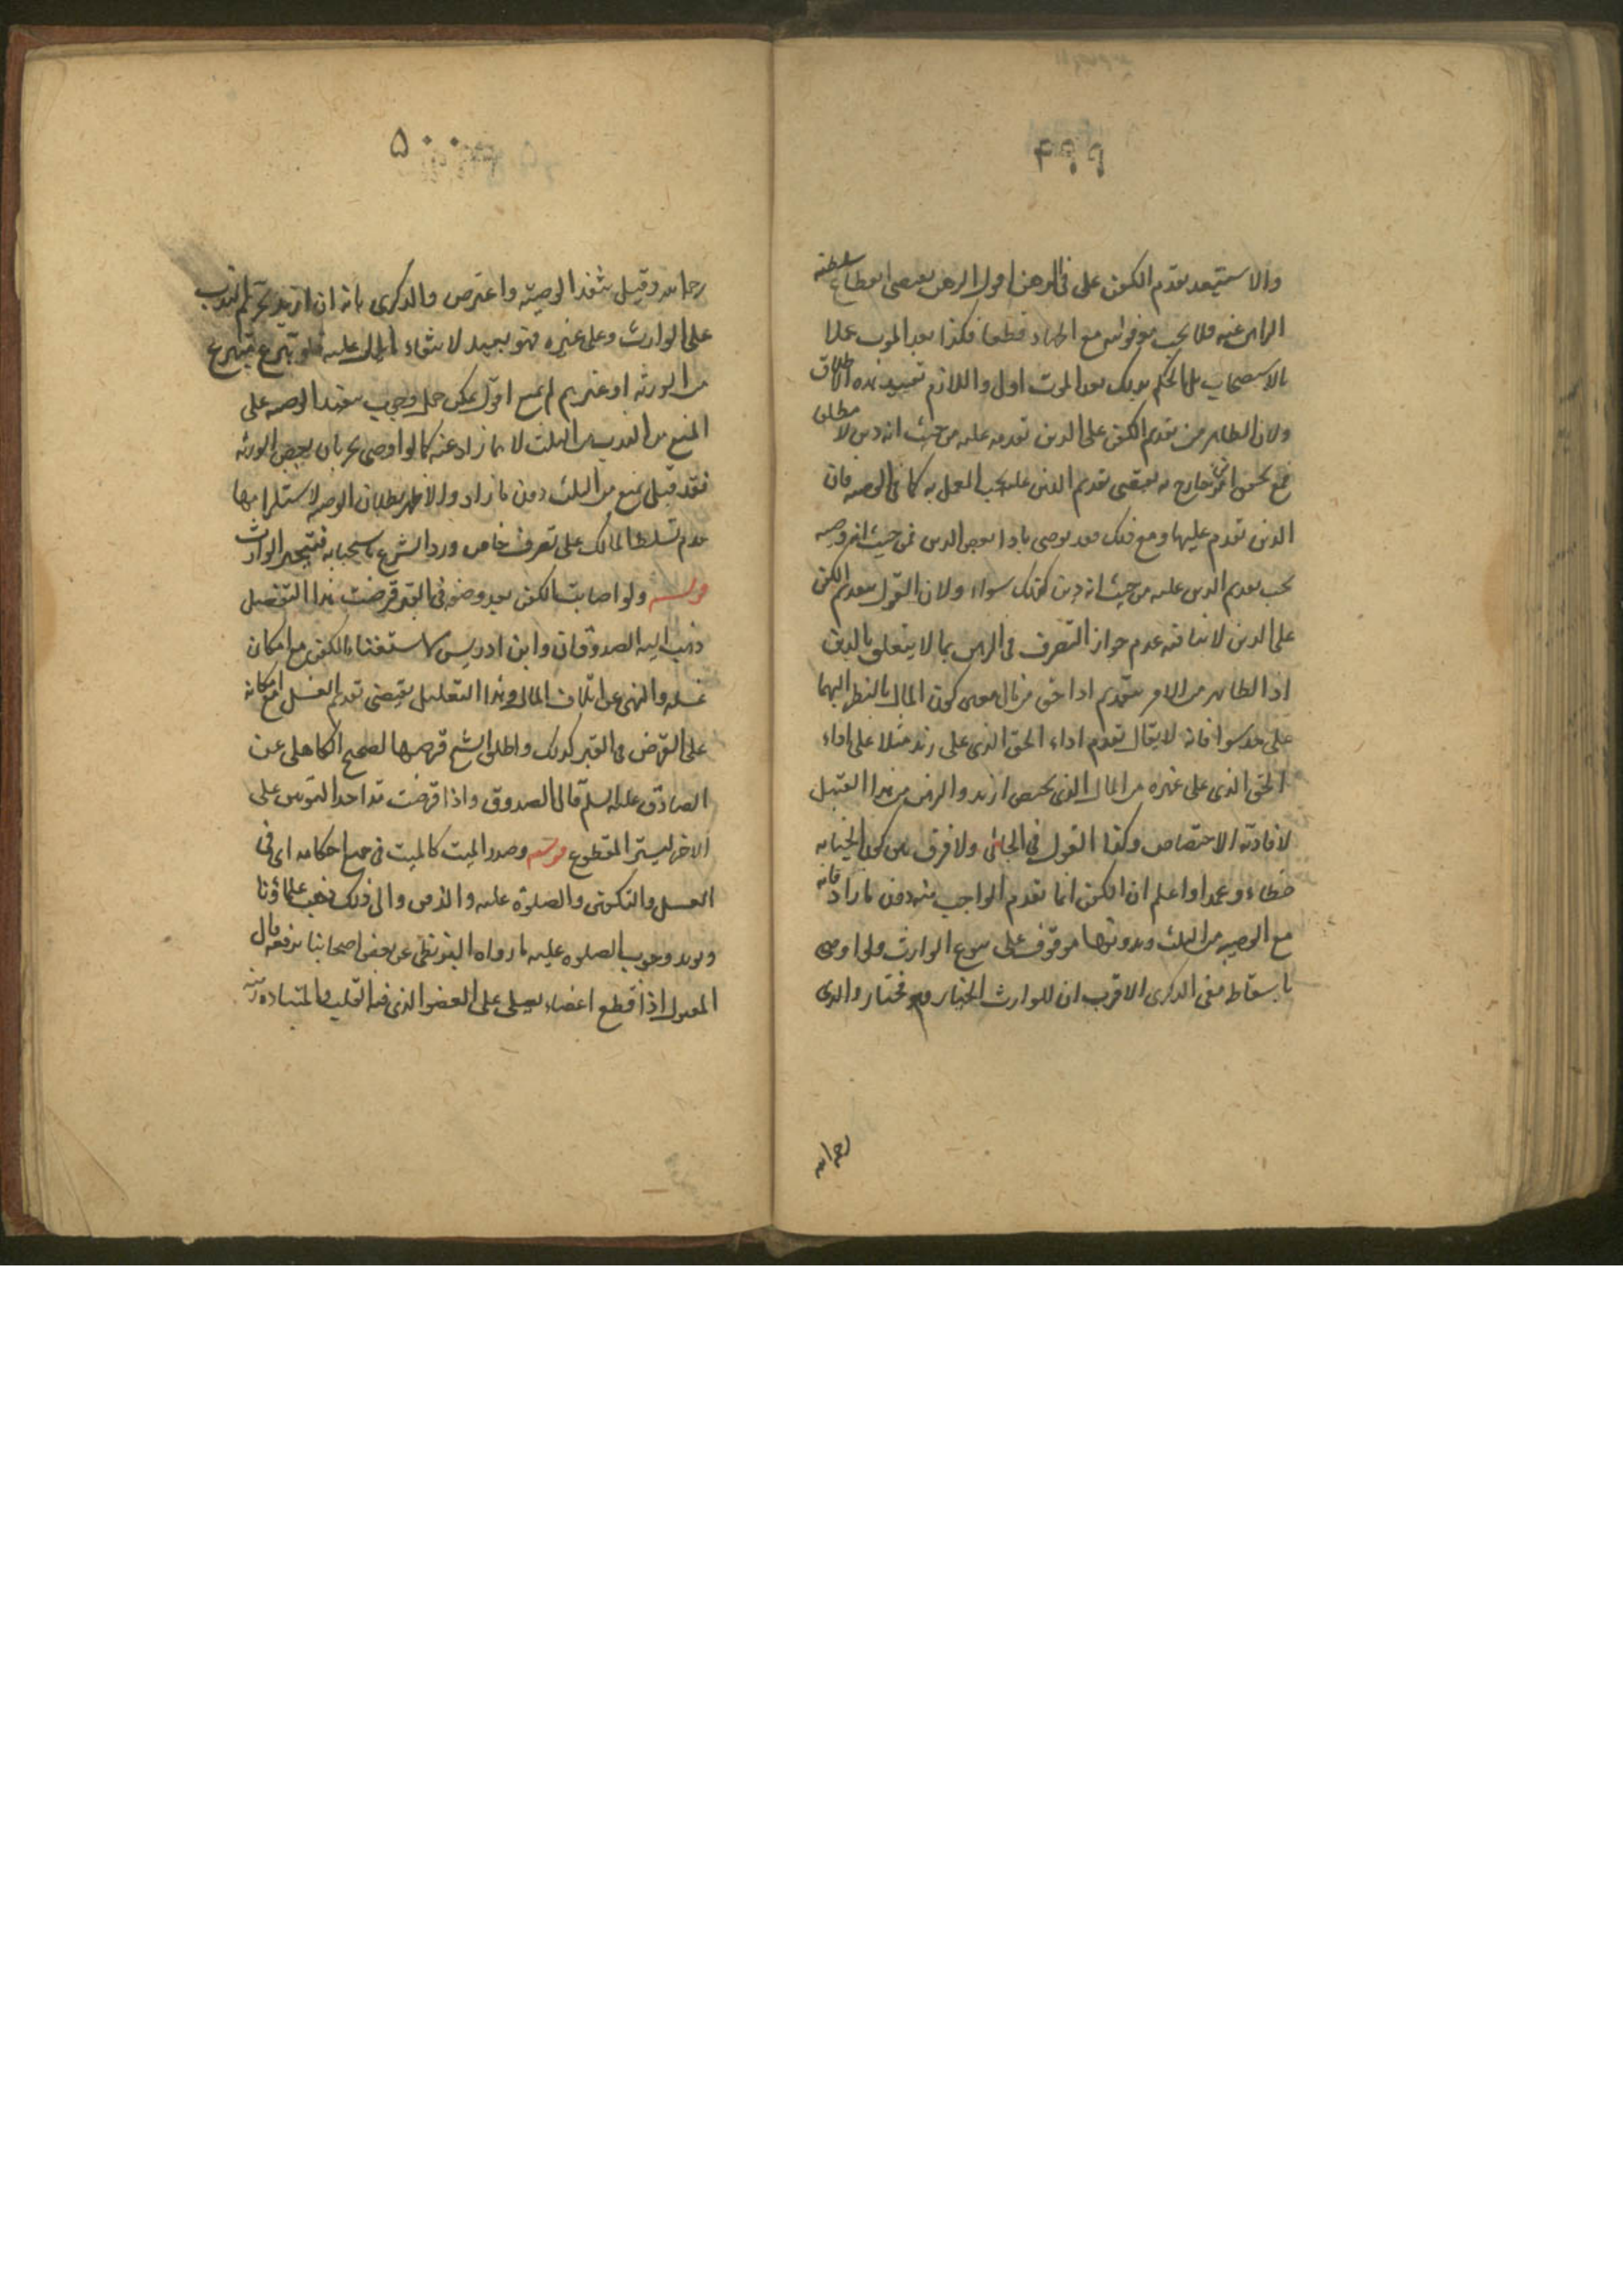 ۴۹۹
والاستبعد تقدم الكفن على في الرهن اقول الرهن يقتضي انقطاع سلطنة
الراهن عنه فلا يجب مع اطهاد قطعا فكذا بعد الموت عملا
بالاستصحاب بل الحكم بذلك بعد الموت اولى واللازم تقييد هذه الاطلاق
ولان الظاهر من تقديم الكفن على الدين تقدمه عليه من حيث انه دين لا مطلقا
فمع تحقق امر خارج يقتضي تقديم الدين عليه يجب العمل به كما في الوصية فان
الدين تقدم عليها ومع ذلك فقد يوصى باداء بعض الدين فمن حيث انه وصية
يجب تقديم الدين عليه من حيث انه دين كذلك سواء ولان القول بتقديم الكفن
على الدين لا ينافيه عدم جواز التصرف في الرهن بما لا يتعلق بالدين
اذ الظاهر من الامر بتقديم اداء حق من مال معين كون المال بالنظر اليهما
على حد سواء فانه لا يقال تقدم اداء الحق الذي على زيد مثلا على اداء
الحق الذي على غيره من المال الذي يختص زيد والرهن من هذا القبيل
لافادته الاختصاص وكذا القول في الجاني ولا فرق بين كون الجناية
خطاء وعمدا واعلم ان الكفن انما تقدم الواجب منه دون ما زاد فانه
مع الوصية من الثلث وبدونها موقوف على تبرع الوارث ولو اوصى
باسقاطه ففي الذكرى الاقرب ان للوارث الخيار وهو مختار والدي
رحمه الله
۵۰۰
رحمه الله وقيل ينفذ الوصية واعترض والذكرى بانه ان اريد تحريم الندب
على الوارث وعلى غيره فهو بعيد لانتفاء الدليل عليه فلو تبرع متبرع
من الورثة او غيرهم لم يمنع اقول يمكن حمل وجوب تنفيذ الوصية على
المنع من الندب من الثلث لا بما زاد عنه كما لو اوصى بحرمان بعض الورثة
فقد قيل يمنع من الثلث دون ما زاد والاظهر بطلان الوصية لاستلزامها
عدم تسلط المالك على تصرف خاص ورد الشرع باستحبابه فيتخير الوارث
قوله ولو اصابت الكفن بعد وضعه في القبر قرضت هذا التفصيل
ذهب اليه الصدوقان وابن ادريس للاستغناء بالكفن مع امكان
غسله والنهي عن اتلاف المال وهذا التعليل يقتضي تقديم الغسل مع امكانه
على القرض في القبر كذلك واطلق الشيخ قرضها لصحيح الكاهلي عن
الصادق عليه السلم قال الصدوق واذا قرضت مد احد الثوبين على
الاخر ليستر المقطوع قوله وصدر الميت كالميت في جميع احكامه اى في
الغسل والتكفين والصلوة عليه والدفن والى ذلك ذهب علماؤنا
ويؤيد وجوب الصلوة عليه ما رواه البزنطي عن بعض اصحابنا يرفعه قال
المقتول اذا قطع اعضاء يصلى على العضو الذي فيه القلب